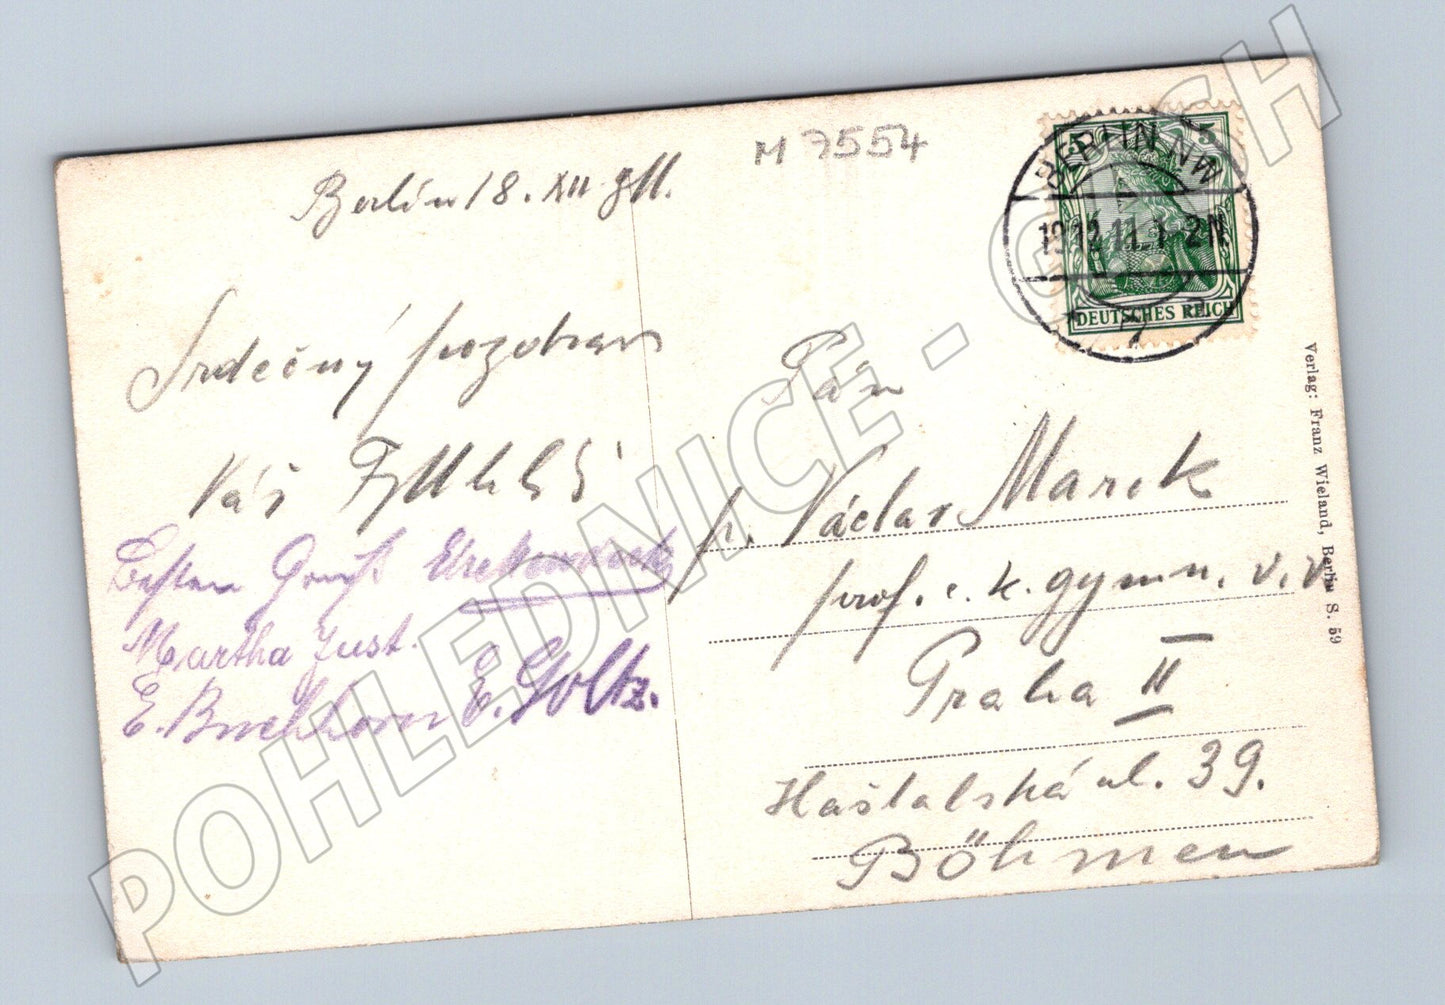 M 7554
Berlin 18. XII 911.
Srdečný pozdrav
Váš
Besten Gruß
Martha Just.
E. Buchhorn E. Goltz.
BERLIN NW
19.12.11. 1-2N.
7
5 5
DEUTSCHES REICH
Pán
p. Václav Marek
prof. c. k. gymn. v. v.
Praha II
Haštalská ul. 39.
Böhmen
Verlag: Franz Wieland, Berlin S. 59
POHLEDNICE - CASH